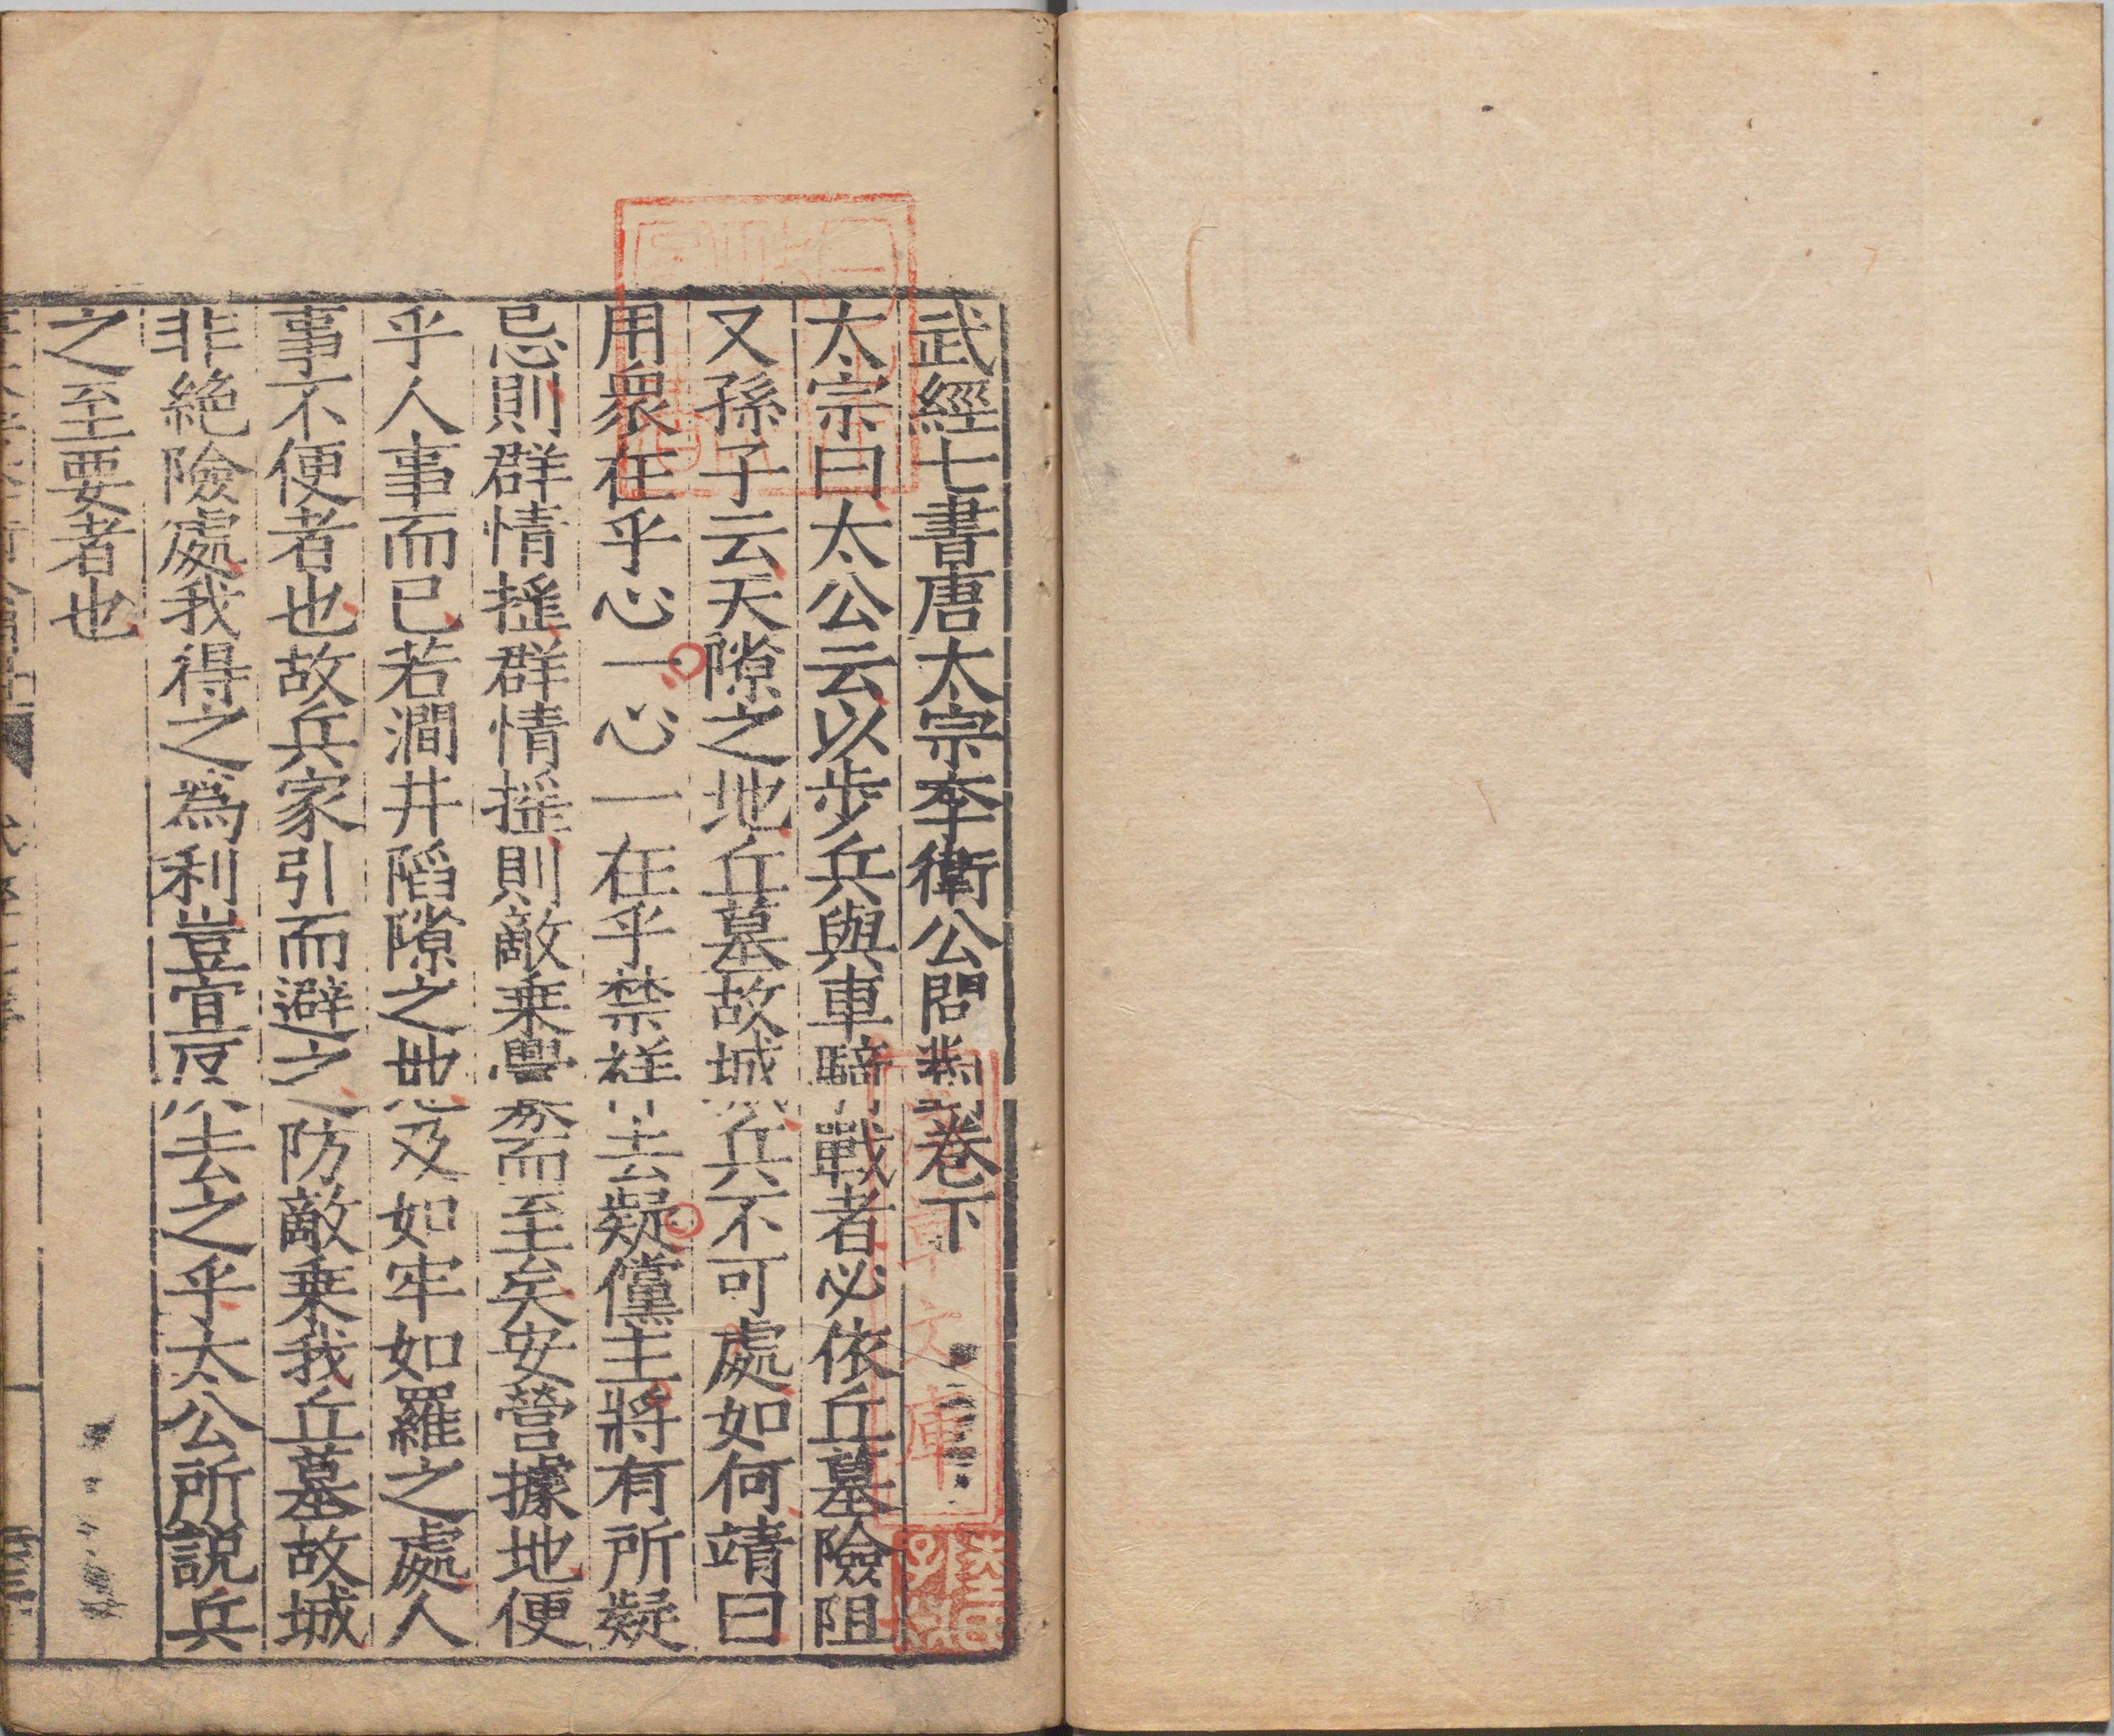 武經七書唐太宗李衛公問對卷下
太宗曰太公云以步兵與車騎戰者必依丘墓險阻
又孫子云天隙之地丘墓故城兵不可處如何靖曰
用衆在乎心一心一在乎禁祥去疑儻主將有所疑
忌則群情搖群情搖則敵乗舋而至矣安營據地便
乎人事而已若澗井陷隙之地及如牢如羅之處人
事不便者也故兵家引而避之防敵乗我丘墓故城
非絶險處我得之爲利豈宜反去之乎太公所説兵
之至要者也